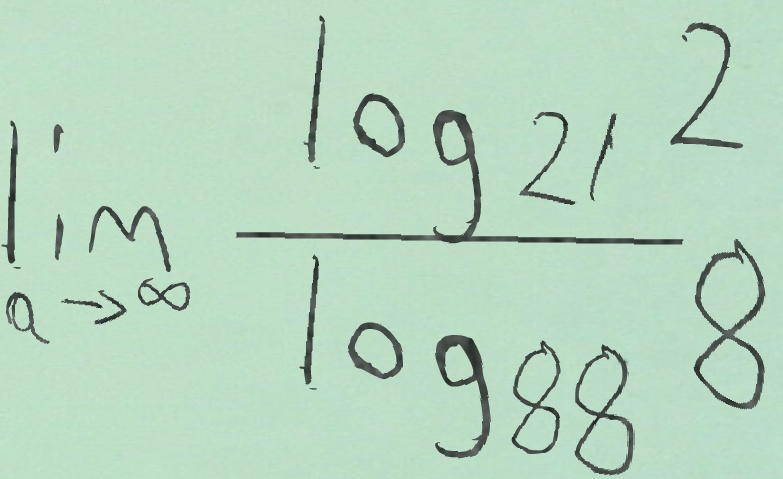 \lim_{a \to \infty} \frac{\log_{21} 2}{\log_{88} 8}